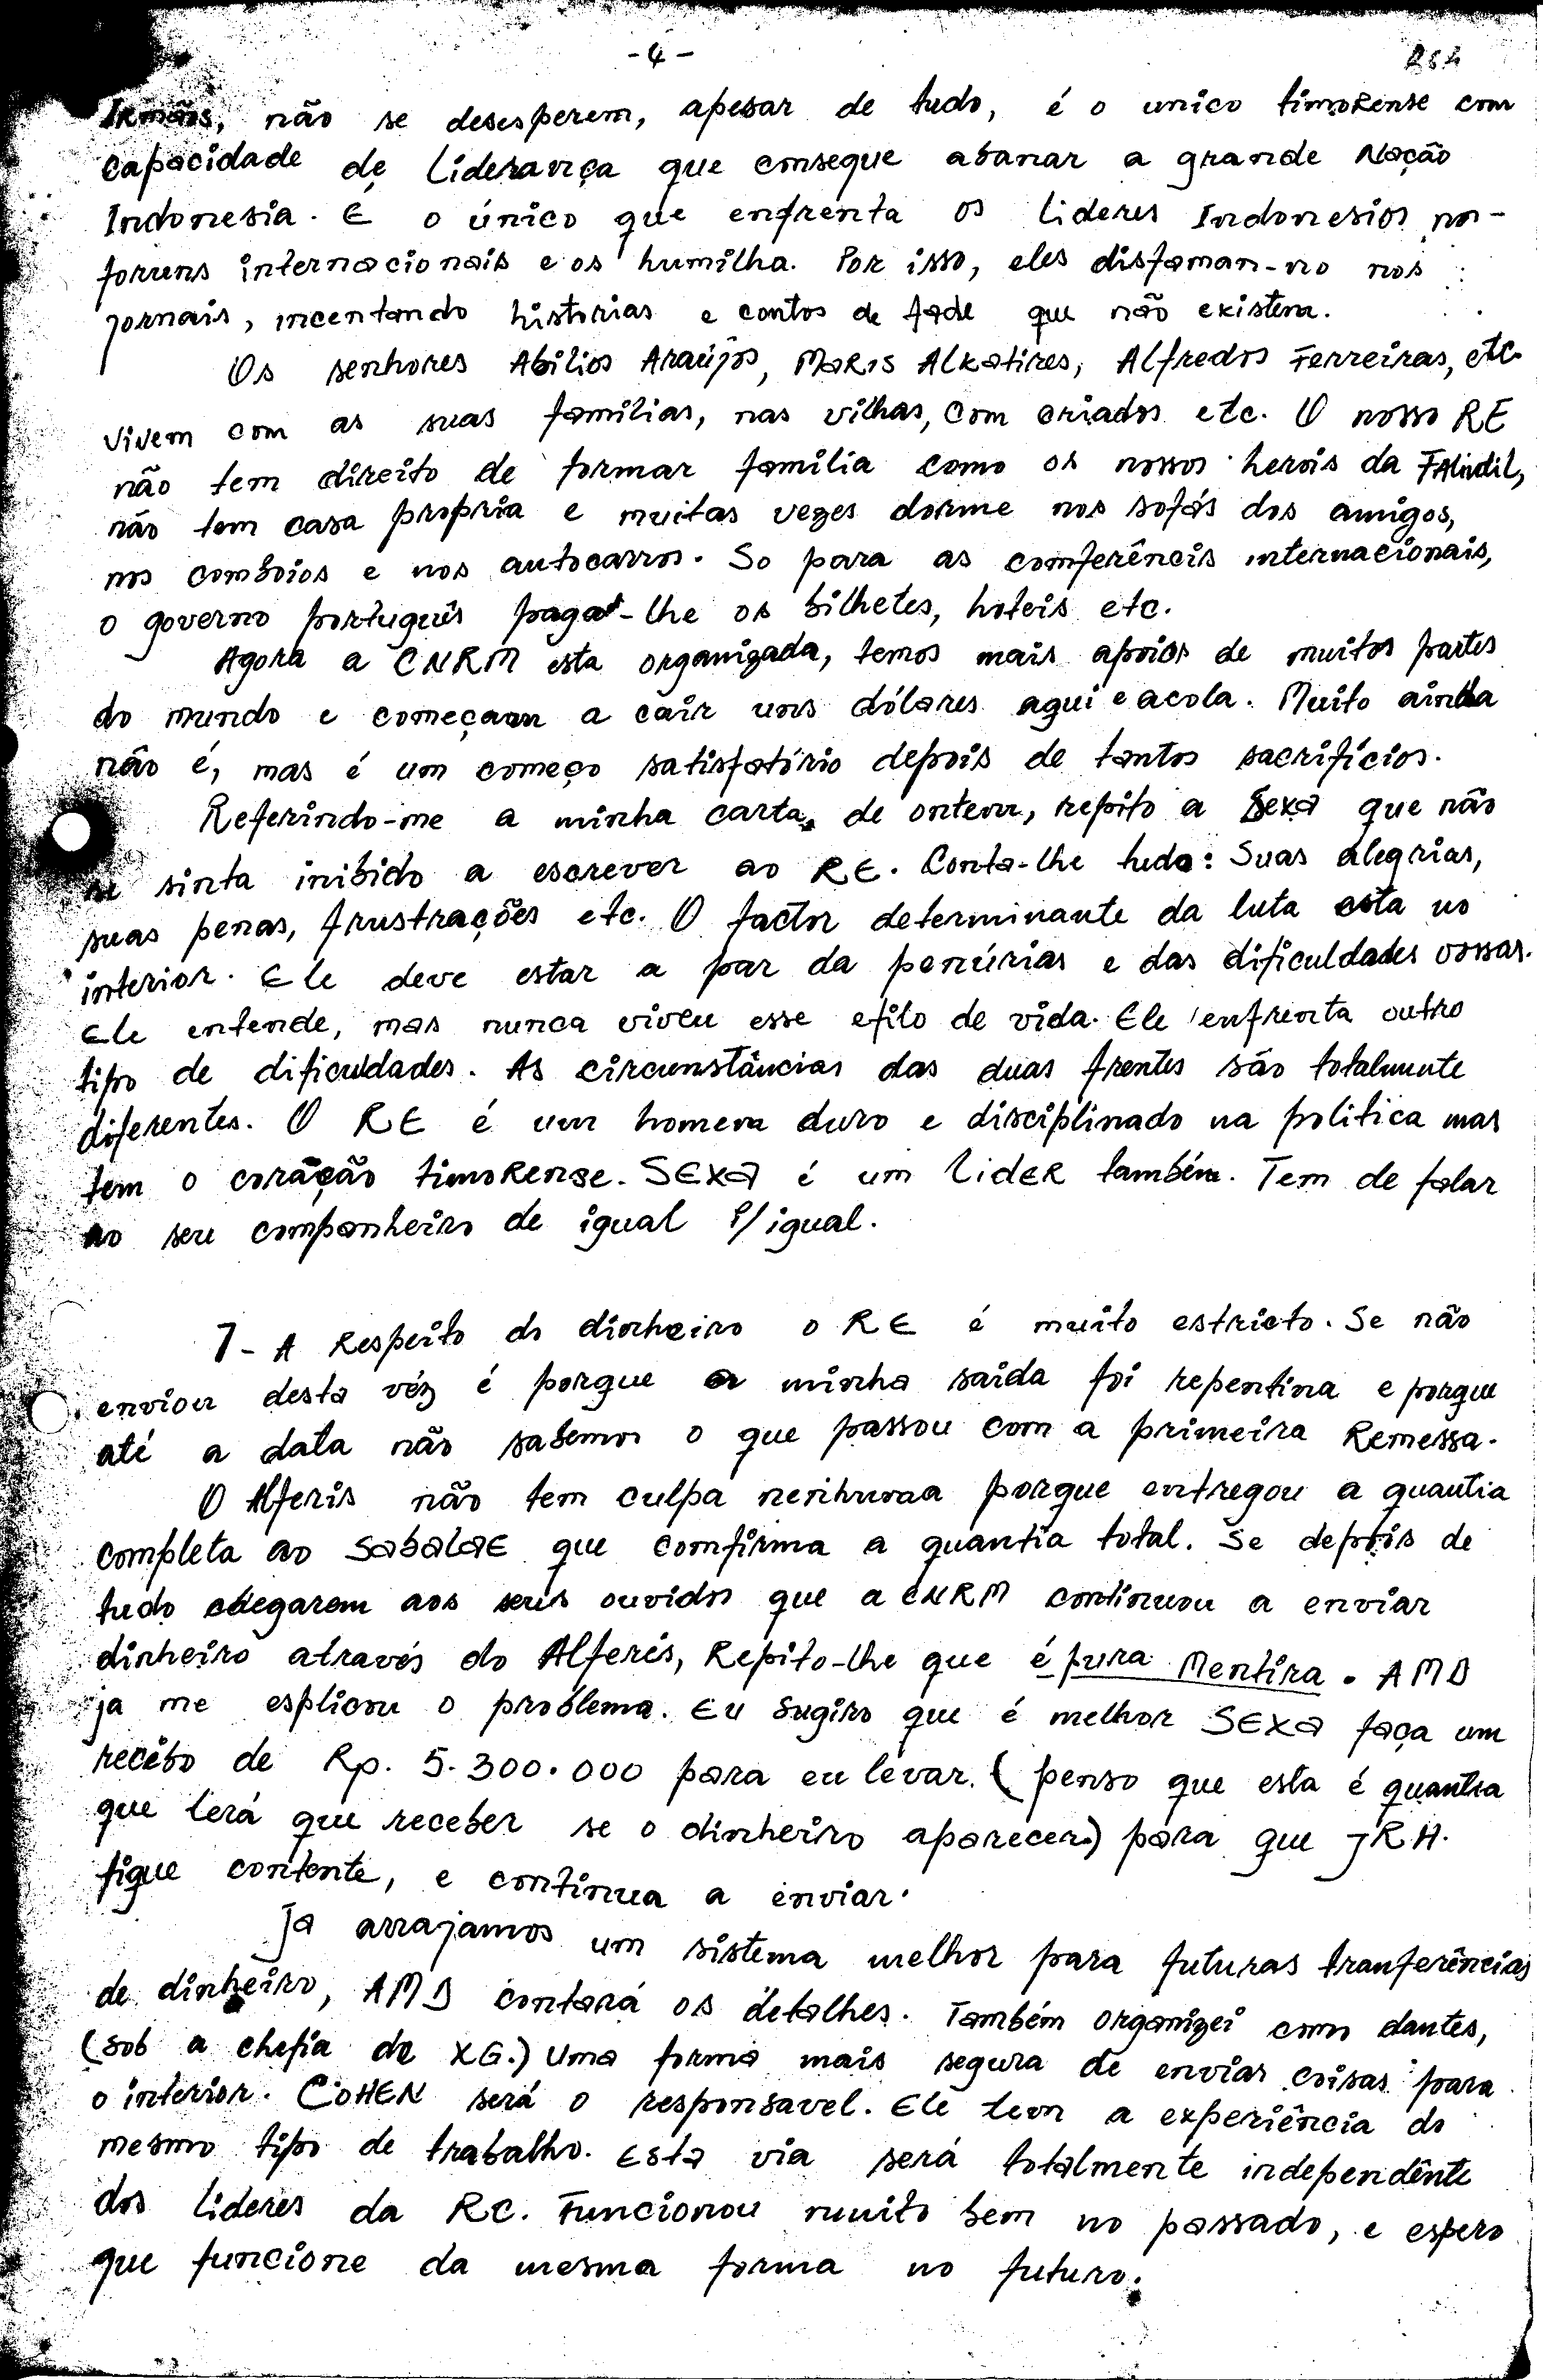 - 4 -
Irmãos, não se desesperem, apesar de tudo, é o unico timorense com
capacidade de liderança que consegue abanar a grande Nação
Indonesia. E o único que enfrenta os lideres Indonesios nos
foruns internacionais e os humilha. Por isso, eles disfaman-no nos
jornais, incentando historias e contos de fade que não existem.
Os senhores Abilios Araújos, Maris Alkatires, Alfredos Ferreiras, etc.
vivem com as suas familias, nas vilhas, com criados etc. O nosso RE
não tem direito de formar familia como os nossos herois da Falintil,
não tem casa propria e muitas vezes dorme nos sofás dos amigos,
nos comboios e nos autocarros. So para as comferências internacionais,
o governo português paga-lhe os bilhetes, hoteis etc.
Agora a CNRM esta organizada, temos mais apoios de muitos partes
do mundo e começam a cair uns dólares aqui e acola. Muito ainda
não é, mas é um começo satisfatório depois de tantos sacrifícios.
Referindo-me a minha carta, de ontem, repito a Sexa que não
se sinta inibido a escrever ao RE. Conta-lhe tudo: Suas alegrias,
suas penas, frustrações etc. O factor determinante da luta esta no
interior. Ele deve estar a par da penúrias e das dificuldades vossas.
Ele entende, mas nunca viveu esse efilo de vida. Ele enfrenta outro
tipo de dificuldades. As circunstâncias das duas frentes são totalmente
diferentes. O RE é um homem duro e disciplinado na politica mas
tem o coração timorense. SEXA é um lider também. Tem de falar
ao seu companheiro de igual p/ igual.
7- A Respeito do dinheiro o RE é muito estricto. Se não
enviou desta véz é porque a minha saida foi repentina e porque
até a data não sabemos o que passou com a primeira Remessa.
O Alferis não tem culpa nenhuma porque entregou a quantia
completa ao Sabalae que comfirma a quantia total. Se depois de
tudo chegarem aos seus ouvidos que a CNRM continuou a enviar
dinheiro através do Alferés, Repito-lhe que é pura Mentira. AMB
ja me esplicou o problema. Eu sugiro que é melhor SEXA faça um
recibo de Rp. 5.300.000 para eu levar. (penso que esta é quantia
que terá que receber se o dinheiro aparecer.) para que JRH.
fique contente, e continua a enviar.
Ja arrajamos um sistema melhor para futuras tranferências
de dinheiro, AMB contará os detalhes. Também organizei como dantes,
(sob a chefia de XG.) Uma forma mais segura de enviar coisas para
o interior. COHEN será o responsavel. Ele tem a experiência do
mesmo tipo de trabalho. Esta via será totalmente independênte
dos lideres da RC. Funcionou muito bem no passado, e espero
que funcione da mesma forma no futuro.